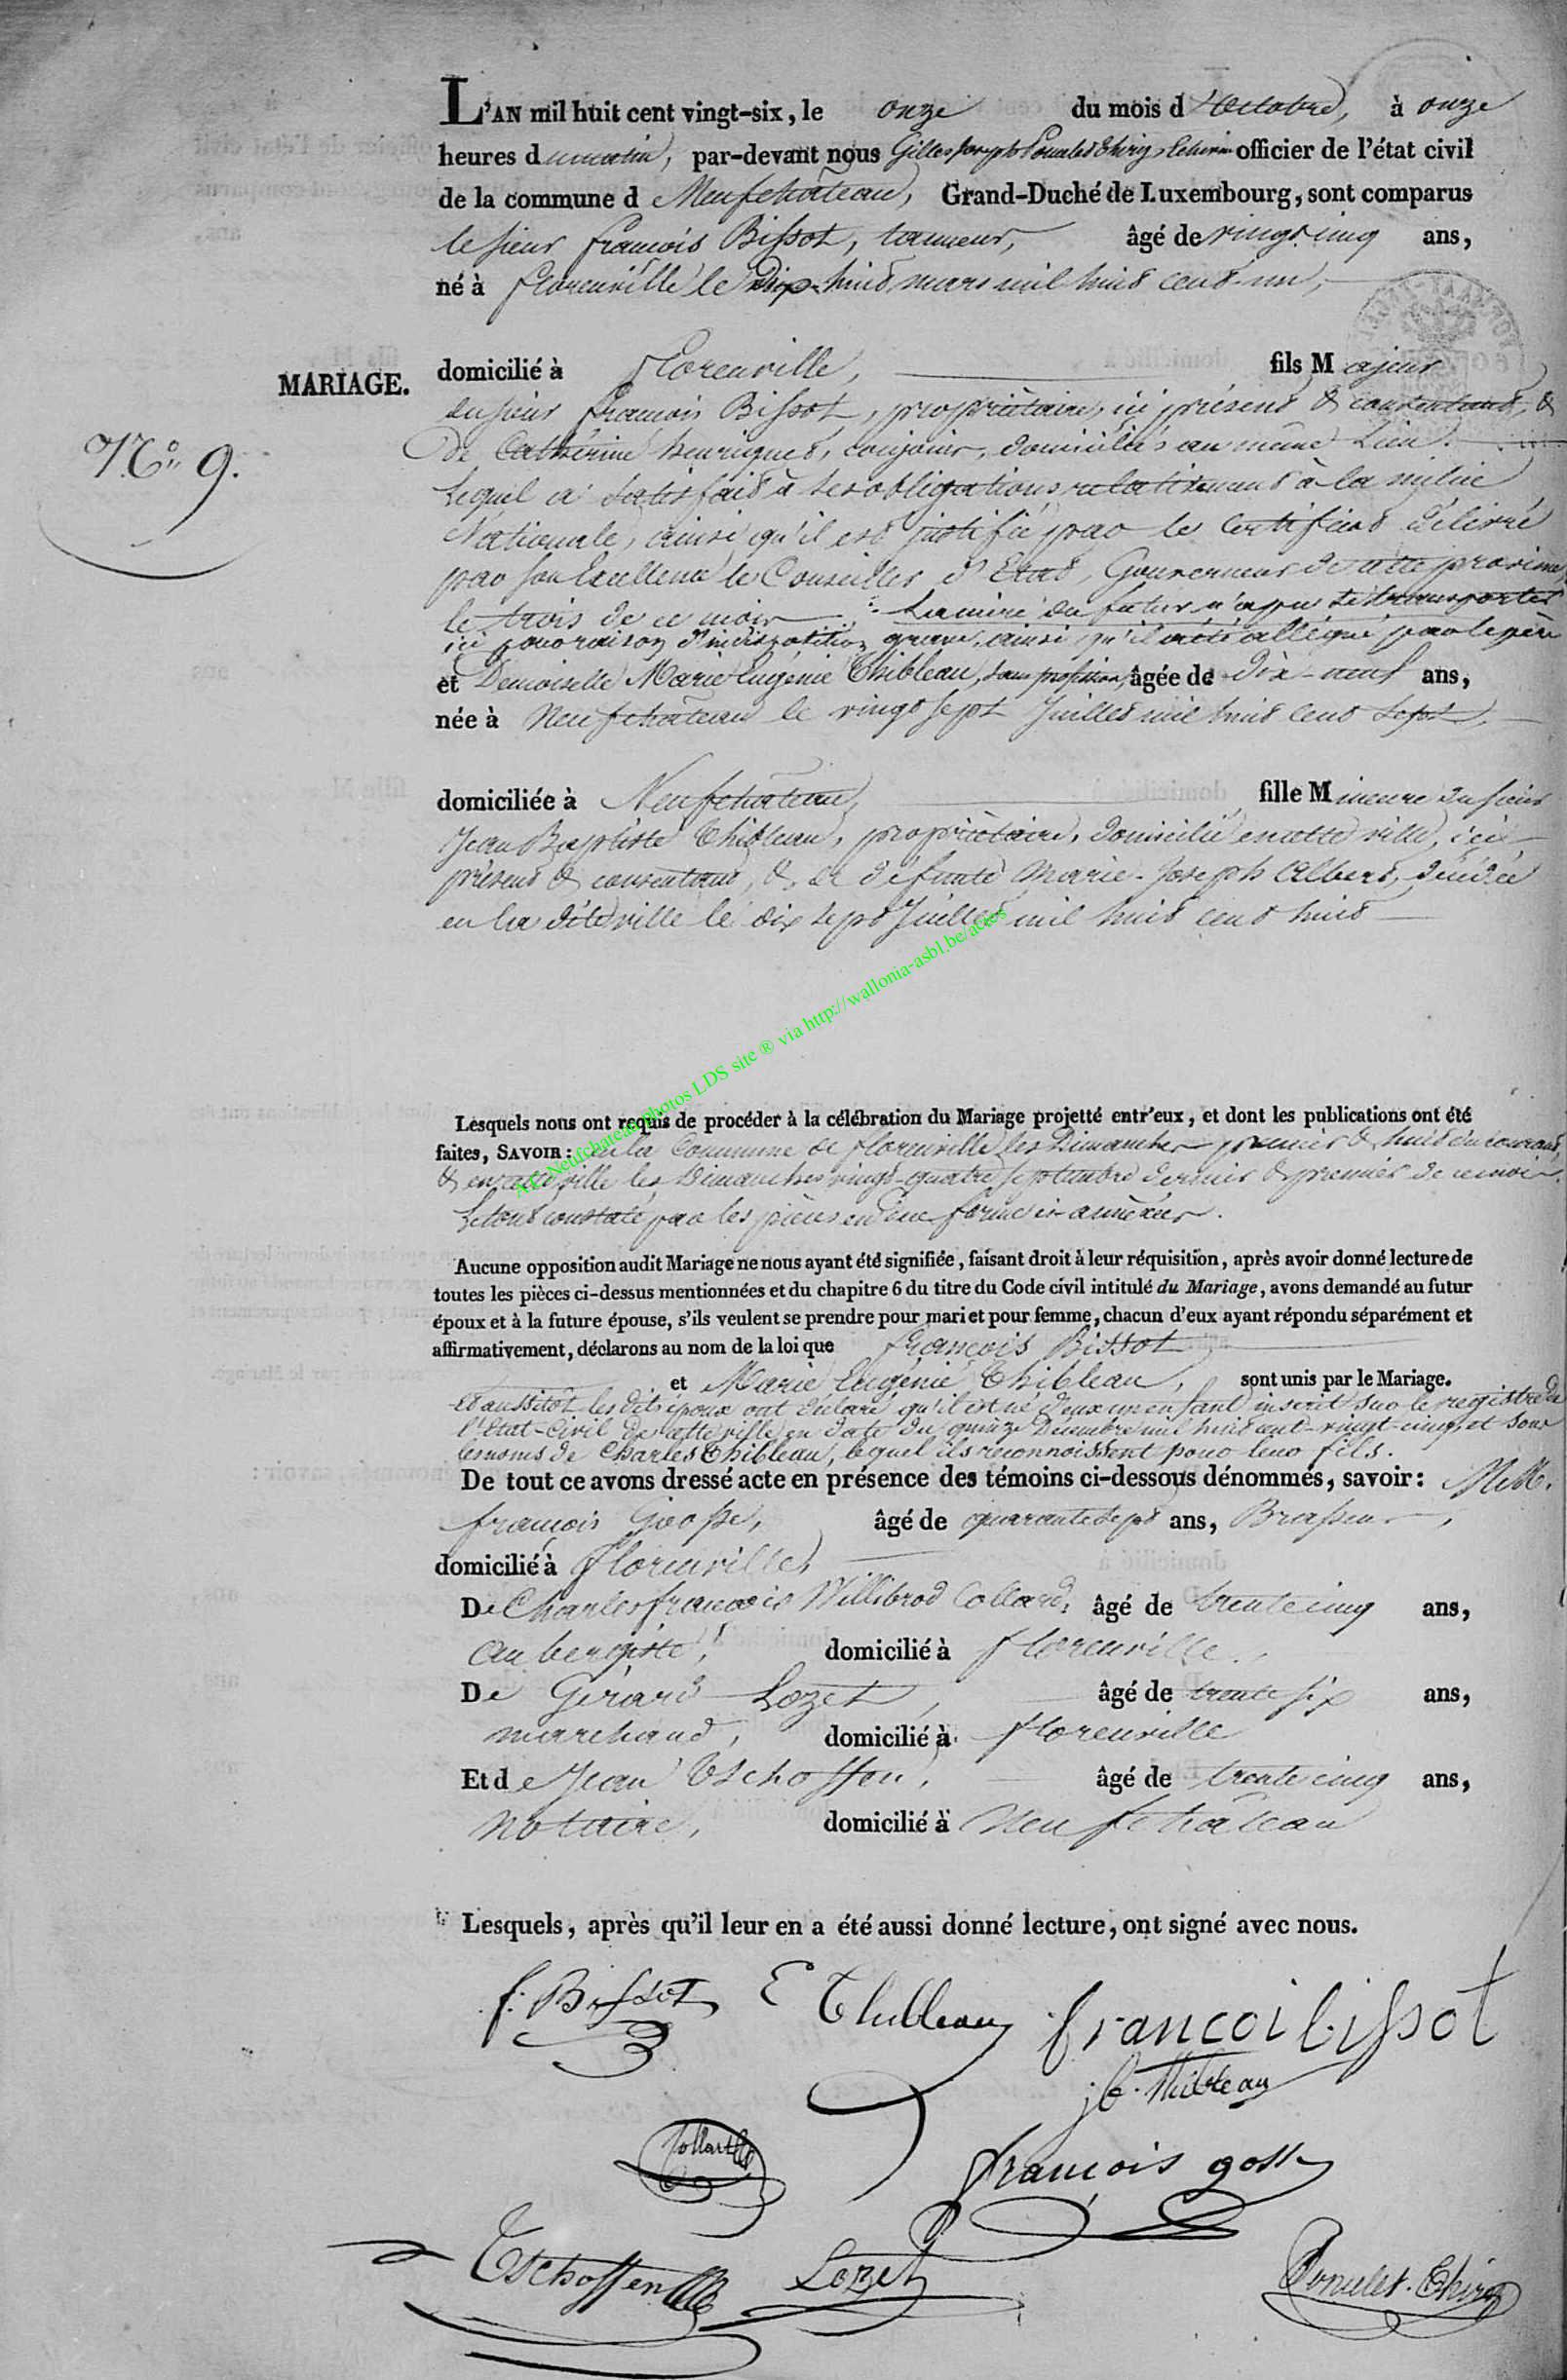 L'AN mil huit cent vingt-six, le onze du mois d'Octobre, à onze
heures du matin, par-devant nous Gilles Joseph Thiry, Echevin officier de l'état civil
de la commune d Neufchâteau, Grand-Duché de Luxembourg, sont comparus
le sieur françois Bissot, tanneur, âgé de vingt cinq ans,
né à florenville le Dix-huit mars mil huit cent-un,
MARIAGE.
N.° 9.
domicilié à florenville, fils Majeur
du sieur françois Bissot, propriètaire, ici présent & consentant, &
de Catherine henriquet, conjoins, domiciliés au même Lieu.
Lequel a satisfait à ses obligations relativement à la milice
Nationale, ainsi qu'il est justifié par le Certificat délivré
par son Excellence le Conseiller d'Etat, Gouverneur de cette province
le trois de ce mois. La mère du futur n'a pu se transporter
ici pour raison d'indisposition grave, ainsi qu'il a été allégué par le père
et Demoiselle Marie Eugénie Thibleau, sans profession, âgée de dix-neuf ans,
née à Neufchâteau le vingt sept Juillet mil huit cent sept,
domiciliée à Neufchâteau, fille Mineure du sieur
Jean Baptiste Thibleau, propriètaire, domicilié en cette ville, ici
présent & consentant, & de défunte Marie-Joseph Albert, décédée
en la dite ville le dix sept Juillet mil huit cent huit
AE Neufchateau Photos LDS site ® via http://wallonia-asbl.be/actes
Lesquels nous ont requis de procéder à la célébration du Mariage projetté entr'eux, et dont les publications ont été
faites, SAVOIR: en la Commune de florenville les Dimanches premier & huit du courant,
& en cette ville les Dimanches vingt-quatre septembre dernier & premier de ce mois.
Le tout constaté par les pièces en due forme ici annèxées.
Aucune opposition audit Mariage ne nous ayant été signifiée, faisant droit à leur réquisition, après avoir donné lecture de
toutes les pièces ci-dessus mentionnées et du chapitre 6 du titre du Code civil intitulé du Mariage, avons demandé au futur
époux et à la future épouse, s'ils veulent se prendre pour mari et pour femme, chacun d'eux ayant répondu séparément et
affirmativement, déclarons au nom de la loi que françois Bissot
et Marie Eugénie Thibleau, sont unis par le Mariage.
Et aussitôt les dits époux ont déclaré qu'il est né d'eux un enfant inscrit sur le registre de
l'Etat-Civil de cette ville en date du quinze Décembre mil huit cent-vingt-cinq, et sous
les noms de Charles Thibleau, lequel ils reconnoissent pour leur fils.
De tout ce avons dressé acte en présence des témoins ci-dessous dénommés, savoir: MM.
françois Gosse, âgé de quarante sept ans, Brasseur,
domicilié à florenville,
De Charles françois Willibrod Collard, âgé de trente cinq ans,
aubergiste, domicilié à florenville.
De Gérard Lozet, âgé de trente six ans,
marchand, domicilié à florenville
Et de Jean Tschoffen, âgé de trente cinq ans,
Notaire, domicilié à Neufchâteau
Lesquels, après qu'il leur en a été aussi donné lecture, ont signé avec nous.
f: Bissot E Thibleau françoi bissot
jb. thibleau
Collard
françois gosse
Tschoffen Lozet Thiry